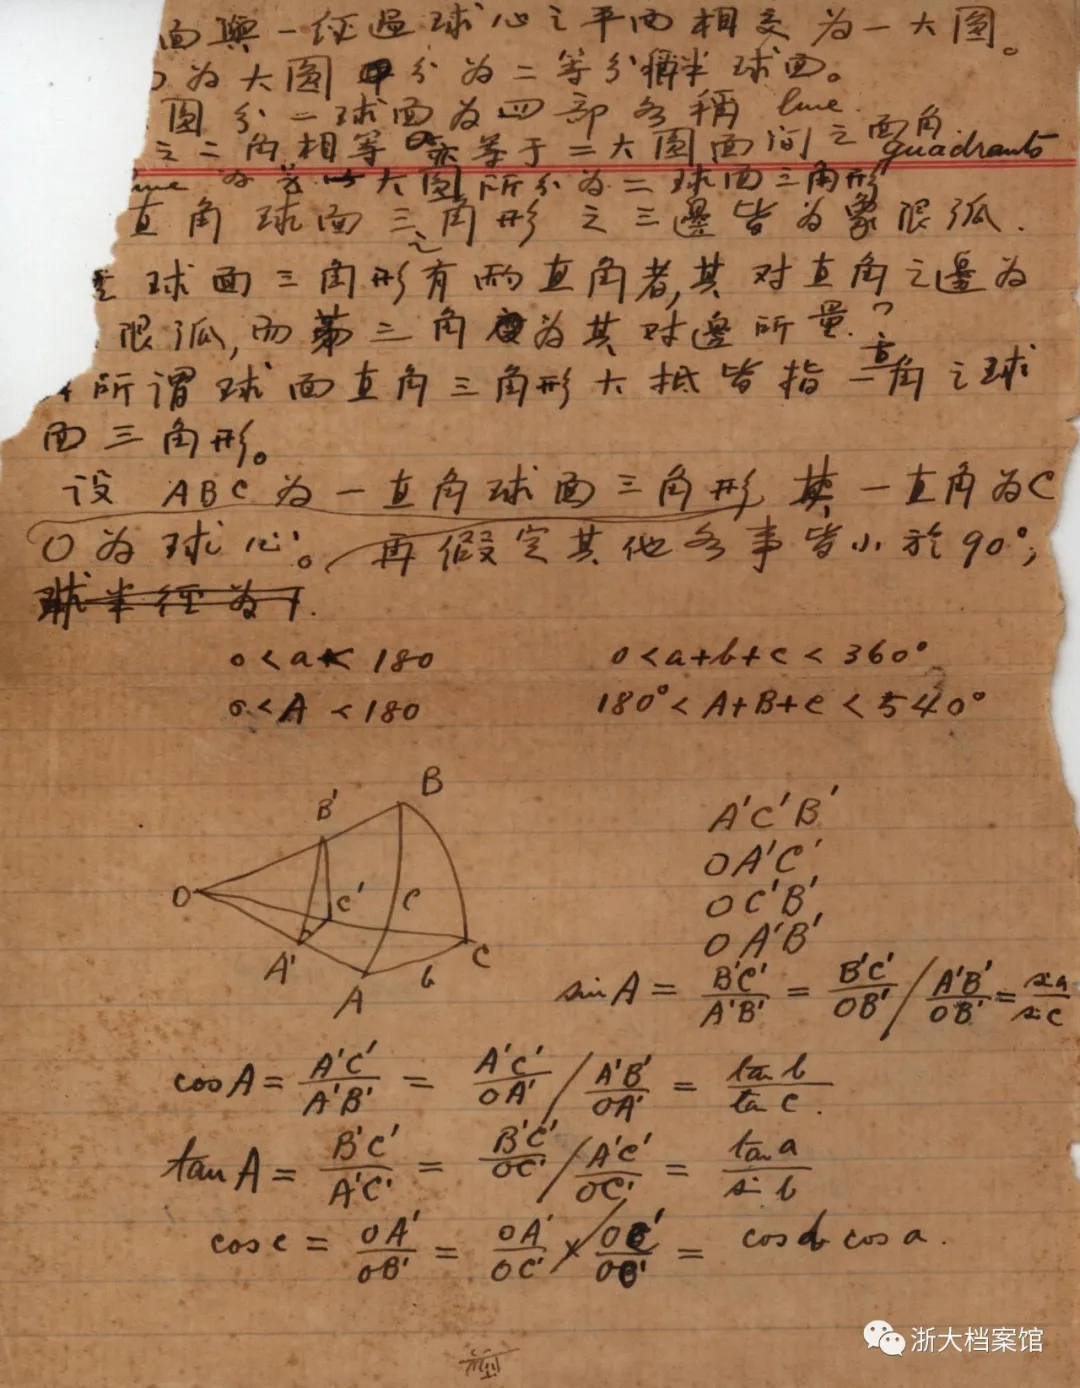 面與一经過球心之平面相交为一大圆。
为大圆 分为二等分稱半球面。
圆分一球面为四部各稱 lune.
之二角相等 亦等于二大圆面间之面角.
quadrants
lune 为 大圆所分为二球面三角形
直角球面三角形之三邊皆为象限弧.
球面三角形之有兩直角者,其对直角之邊为
限弧,而第三角度为其对邊所量.
所谓球面直角三角形大抵皆指一直角之球
面三角形。
设 ABC 为一直角球面三角形,其一直角为C
O为球心。再假定其他各事皆小於90°;
球半径为1.
0<a<180 0<a+b+c<360°
0<A<180 180°<A+B+C<540°
B
B'
O
C'
C
A'
A
b
C
A'C'B'
OA'C'
OC'B'
OA'B'
sin A = B'C'/A'B' = B'C'/OB' / A'B'/OB' = si a/si c
cos A = A'C'/A'B' = A'C'/OA' / A'B'/OA' = tan b/tan c.
tan A = B'C'/A'C' = B'C'/OC' / A'C'/OC' = tan a/si b
cos c = OA'/OB' = OA'/OC' × OC'/OB' = cos b cos a.
浙大档案馆